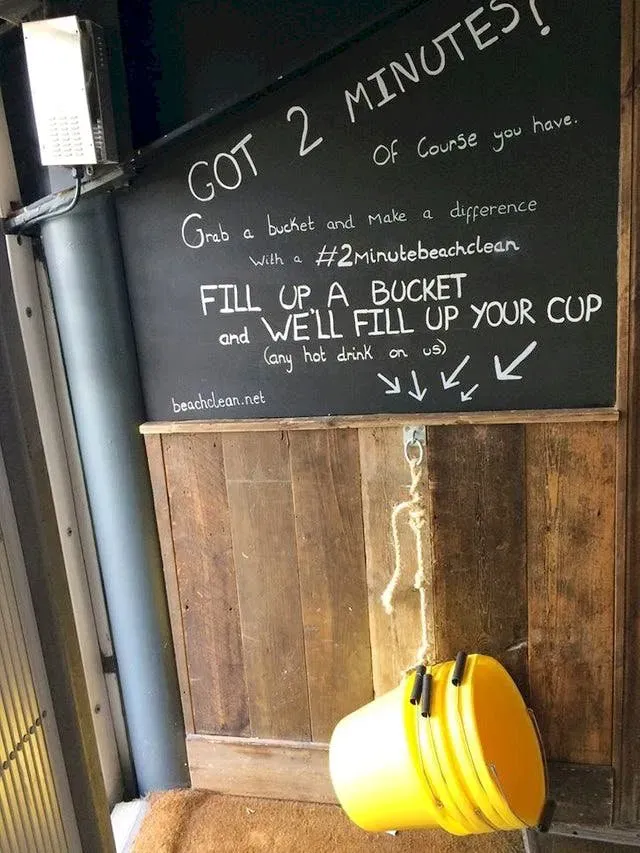 GOT 2 MINUTES?
Of Course you have.
Grab a bucket and make a difference
with a #2minutebeachclean
FILL UP A BUCKET
and WE'LL FILL UP YOUR CUP
(any hot drink on us)
beachclean.net